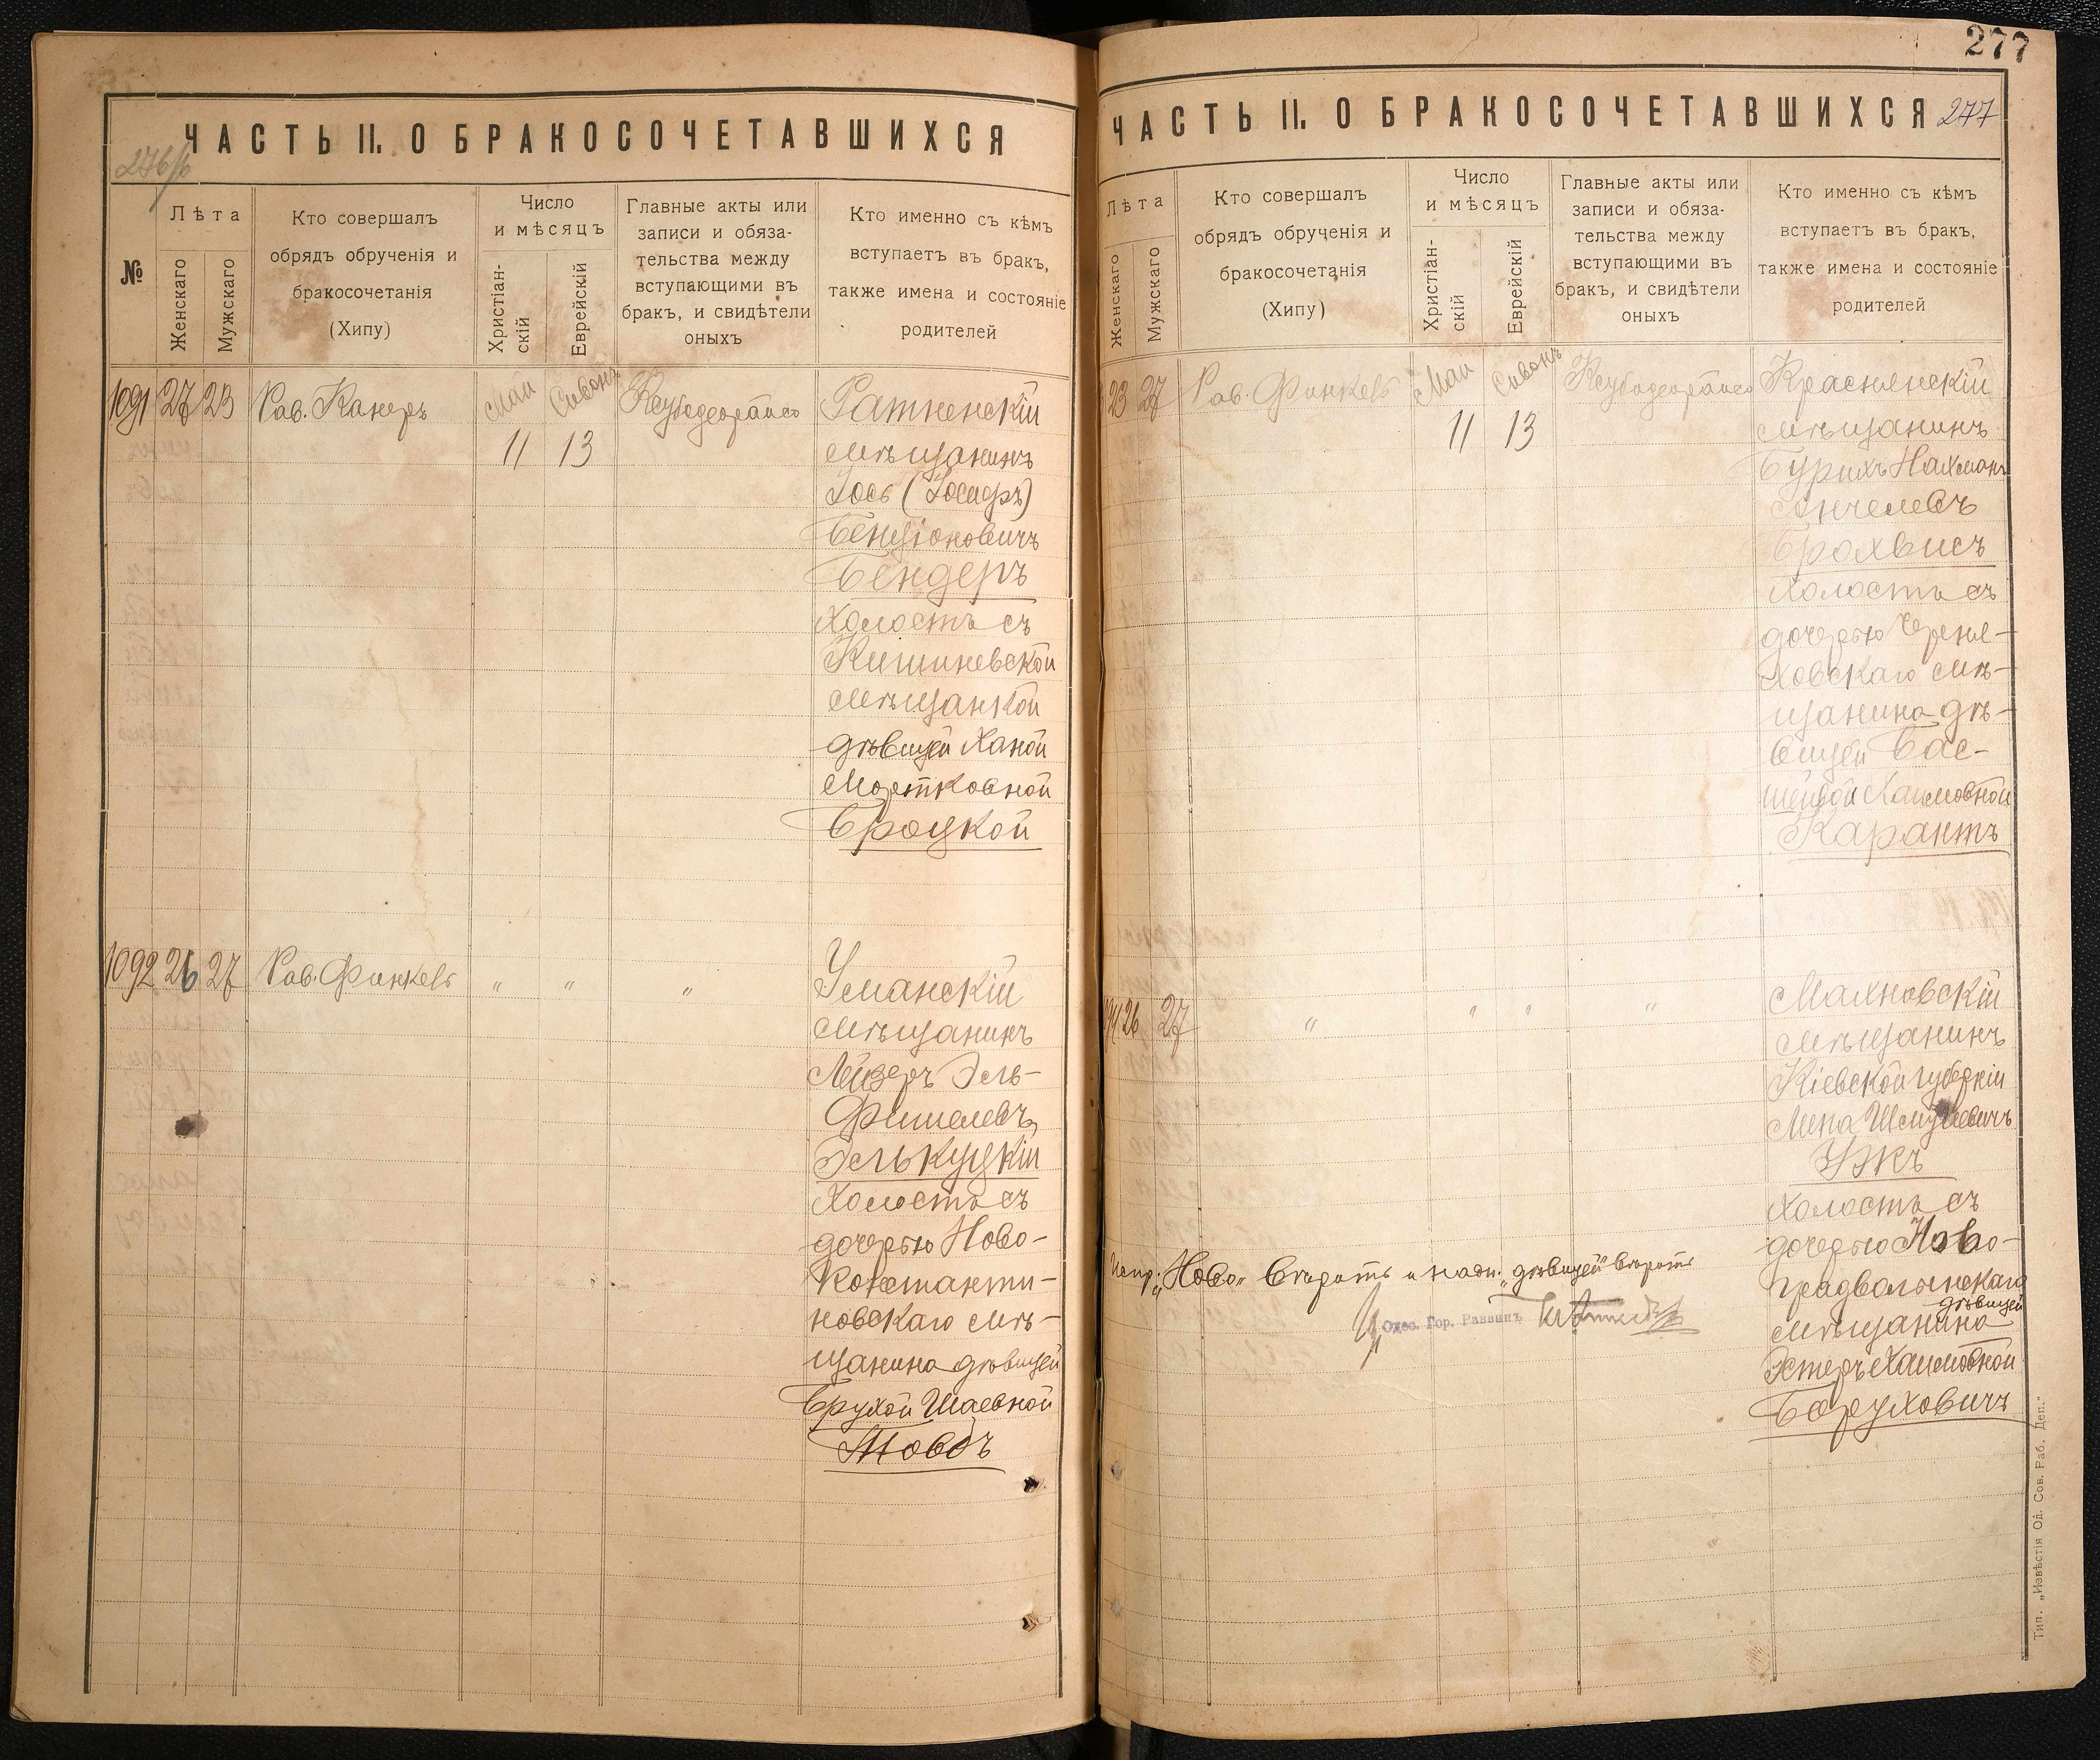 277
ЧАСТЬ II. О БРАКОСОЧЕТАВШИХСЯ
276/б
№
Лѣта
Женскаго
Мужскаго
Кто совершалъ
обрядъ обрученія и
бракосочетанія
(Хипу)
Число
и мѣсяцъ
Христіан-
скій
Еврейскій
Главные акты или
записи и обяза-
тельства между
вступающими въ
бракъ, и свидѣтели
оныхъ
Кто именно съ кѣмъ
вступаетъ въ бракъ,
также имена и состояніе
родителей
1091 27 23 Рав. Канеръ Май 11 Сивонъ 13
Ратненскій
мѣщанинъ
Іось (Іосифъ)
Бенціоновичъ
Бендеръ
холостъ съ
Кишиневской
мѣщанкой
дѣвицей Ханой
Мортковной
Броцкой
1092 26 27 Рав. Финкель " " "
Уманскій
мѣщанинъ
Лейзеръ Эль-
Фишелевъ
Элькуцкій
холостъ съ
дочерью Ново-
константи-
новскаго мѣ-
щанина дѣвицей
Брухой Шаевной
Товбъ
ЧАСТЬ II. О БРАКОСОЧЕТАВШИХСЯ 277
Лѣта
Женскаго
Мужскаго
Кто совершалъ
обрядъ обрученія и
бракосочетанія
(Хипу)
Число
и мѣсяцъ
Христіан-
скій
Еврейскій
Главные акты или
записи и обяза-
тельства между
вступающими въ
бракъ, и свидѣтели
оныхъ
Кто именно съ кѣмъ
вступаетъ въ бракъ,
также имена и состояніе
родителей
23 27 Рав. Финкель Май 11 Сивонъ 13
Краснянскій
мѣщанинъ
Бурихъ Нахманъ
Анчелевъ
Брохвисъ
холостъ съ
дочерью Черня-
ховскаго мѣ-
щанина дѣ-
вицей Бас-
шейвой Хаимовной
Карантъ
26 27 " " " "
Махновскій
мѣщанинъ
Кіевской губерніи
Липа Шмулевичъ
Ужъ
холостъ съ
дочерью Ново-
градволынскаго
дѣвицей
мѣщанина
Эстеръ Хаимовной
Боруховичъ
Испр: "Ново" вѣрить и надп. "дѣвицей" вѣрить
Одес. Гор. Раввинъ
Тип. „Извѣстія Од. Сов. Раб. Деп."